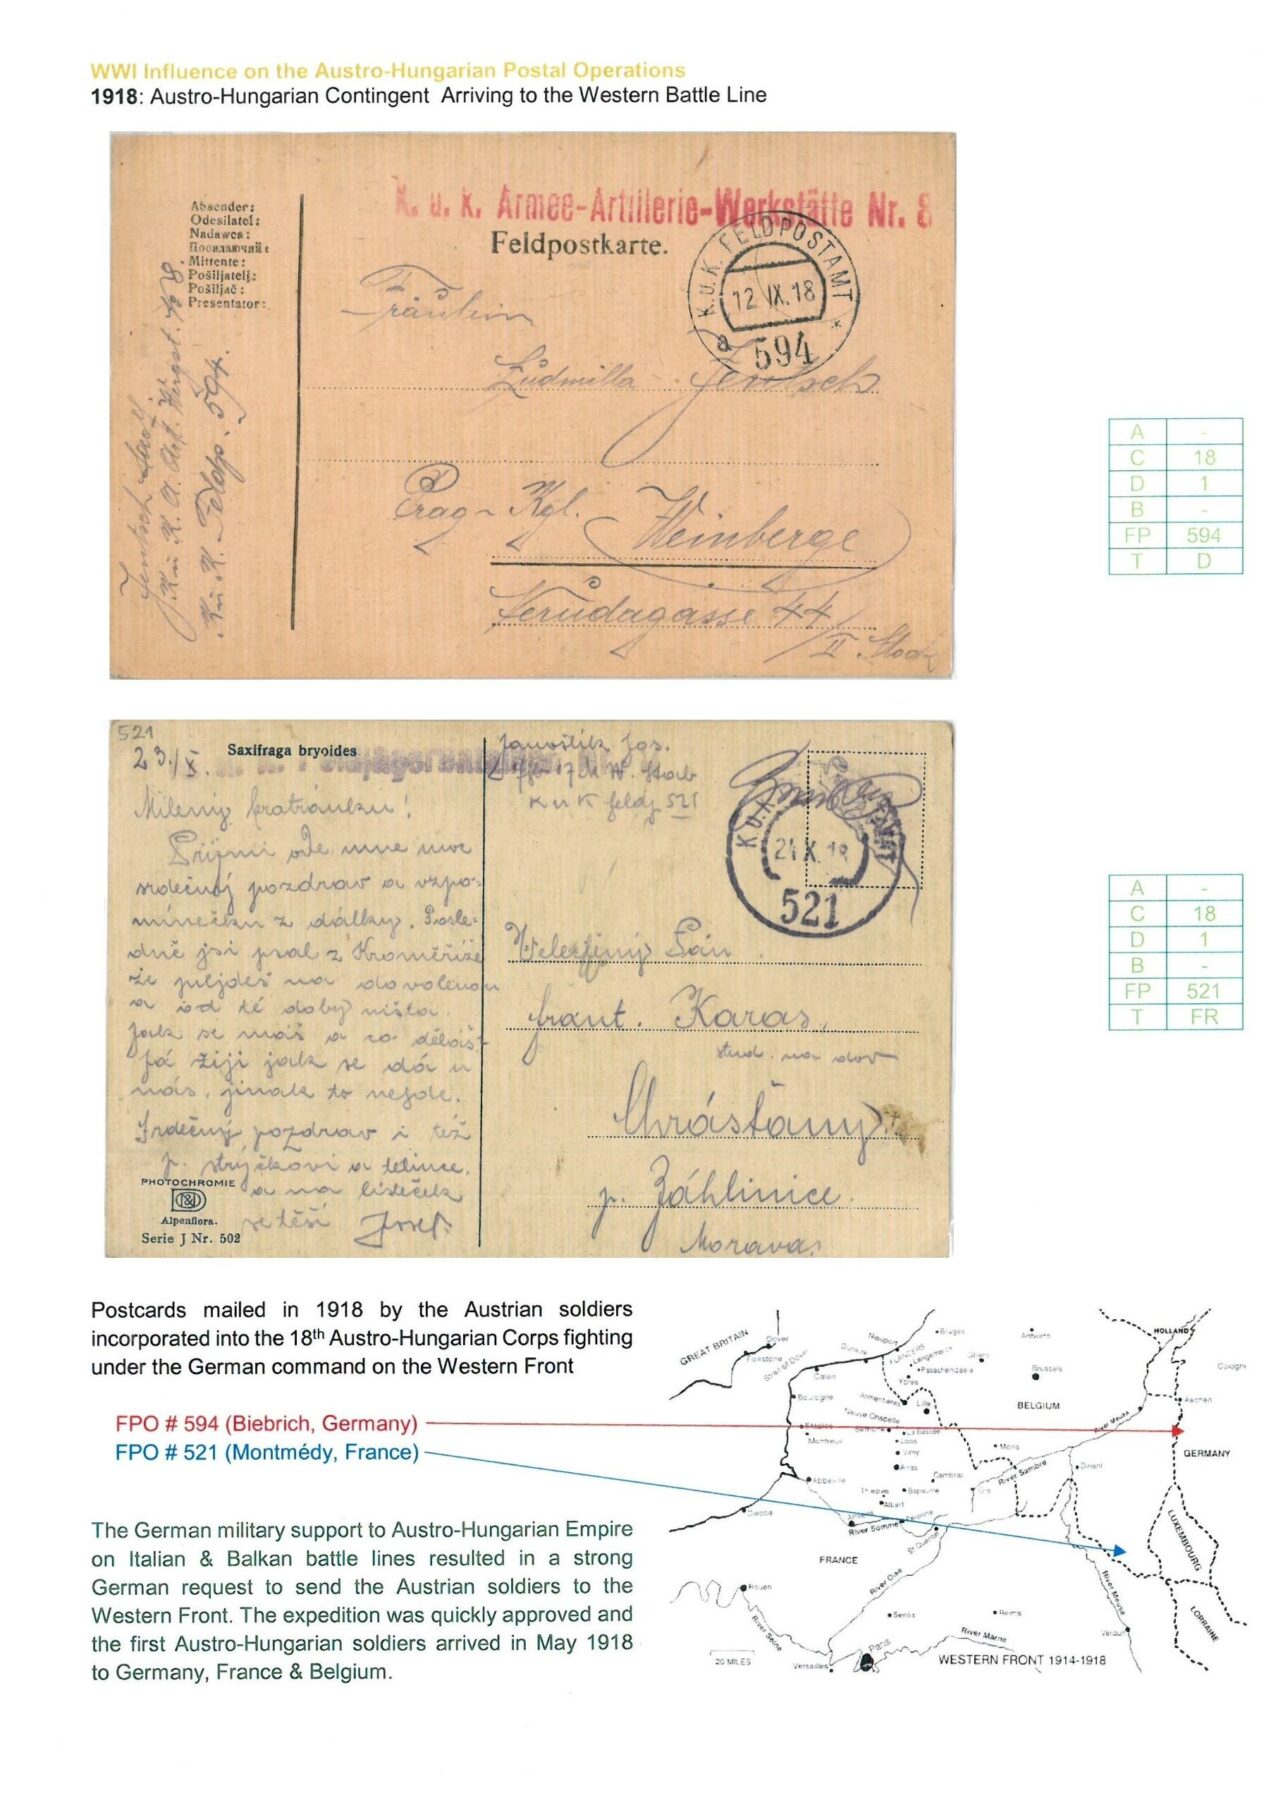 WWI Influence on the Austro-Hungarian Postal Operations
1918: Austro-Hungarian Contingent Arriving to the Western Battle Line
K. u. K. Armee-Artillerie-Werkstätte Nr. 8
Feldpostkarte.
Absender:
Odesilatel:
Nadawca:
Посилаючий:
Mittente:
Pošiljatelj:
Pošiljač:
Presentator:
K.U.K. FELDPOSTAMT
12 IX.18
a 594
Fräulein
Ludmilla Jentsch
Prag - Kgl.
Weinberge
Nerudagasse 44/
II. Stock
Jentsch
K u. K. Feldp. 594.
A -
C 18
D 1
B -
FP 594
T D
521
23./X.
Saxifraga bryoides
Jos.
K u K feldp 521
K.U.K.
24 X. 18
521
Milený bratránku!
Přijmi ode mne
srdečný pozdrav a vzpo-
mínečku z dálky. Posle-
dně jsi psal z Kroměříže
že půjdeš na dovolenou
a od té doby ništa.
Jak se máš a co děláš?
Já žiji jak se dá u
nás, jinak to nejde.
Srdečný pozdrav i též
p. strýčkovi a tetince.
a na lísteček
se těší Josef.
Velectěný Pán
frant. Karas,
stud. na dov
Chrášťany
p. Záhlinice
Morava.
PHOTOCHROMIE
Alpenflora.
Serie J Nr. 502
A -
C 18
D 1
B -
FP 521
T FR
Postcards mailed in 1918 by the Austrian soldiers
incorporated into the 18th Austro-Hungarian Corps fighting
under the German command on the Western Front
FPO # 594 (Biebrich, Germany)
FPO # 521 (Montmédy, France)
The German military support to Austro-Hungarian Empire
on Italian & Balkan battle lines resulted in a strong
German request to send the Austrian soldiers to the
Western Front. The expedition was quickly approved and
the first Austro-Hungarian soldiers arrived in May 1918
to Germany, France & Belgium.
GREAT BRITAIN
Dover
Folkestone
Strait of Dover
Calais
Dunkirk
Nieuport
FLANDERS
Bruges
Antwerp
HOLLAND
Langemarck
Ghent
Passchendaele
Ypres
Brussels
Cologne
Boulogne
Armentieres
Lille
BELGIUM
Aachen
Neuve Chapelle
Etaples
Montreuil
Bethune
La Bassee
Loos
Vimy
Mons
River Meuse
GERMANY
Arras
Abbeville
Cambrai
River Sambre
Dinant
Thiepval
Bapaume
Ors
Albert
Dieppe
Amiens
Peronne
River Somme
St Quentin
FRANCE
LUXEMBOURG
River Oise
River Meuse
Rouen
River Seine
Senlis
Reims
LORRAINE
River Marne
Verdun
Paris
Versailles
20 MILES
WESTERN FRONT 1914-1918